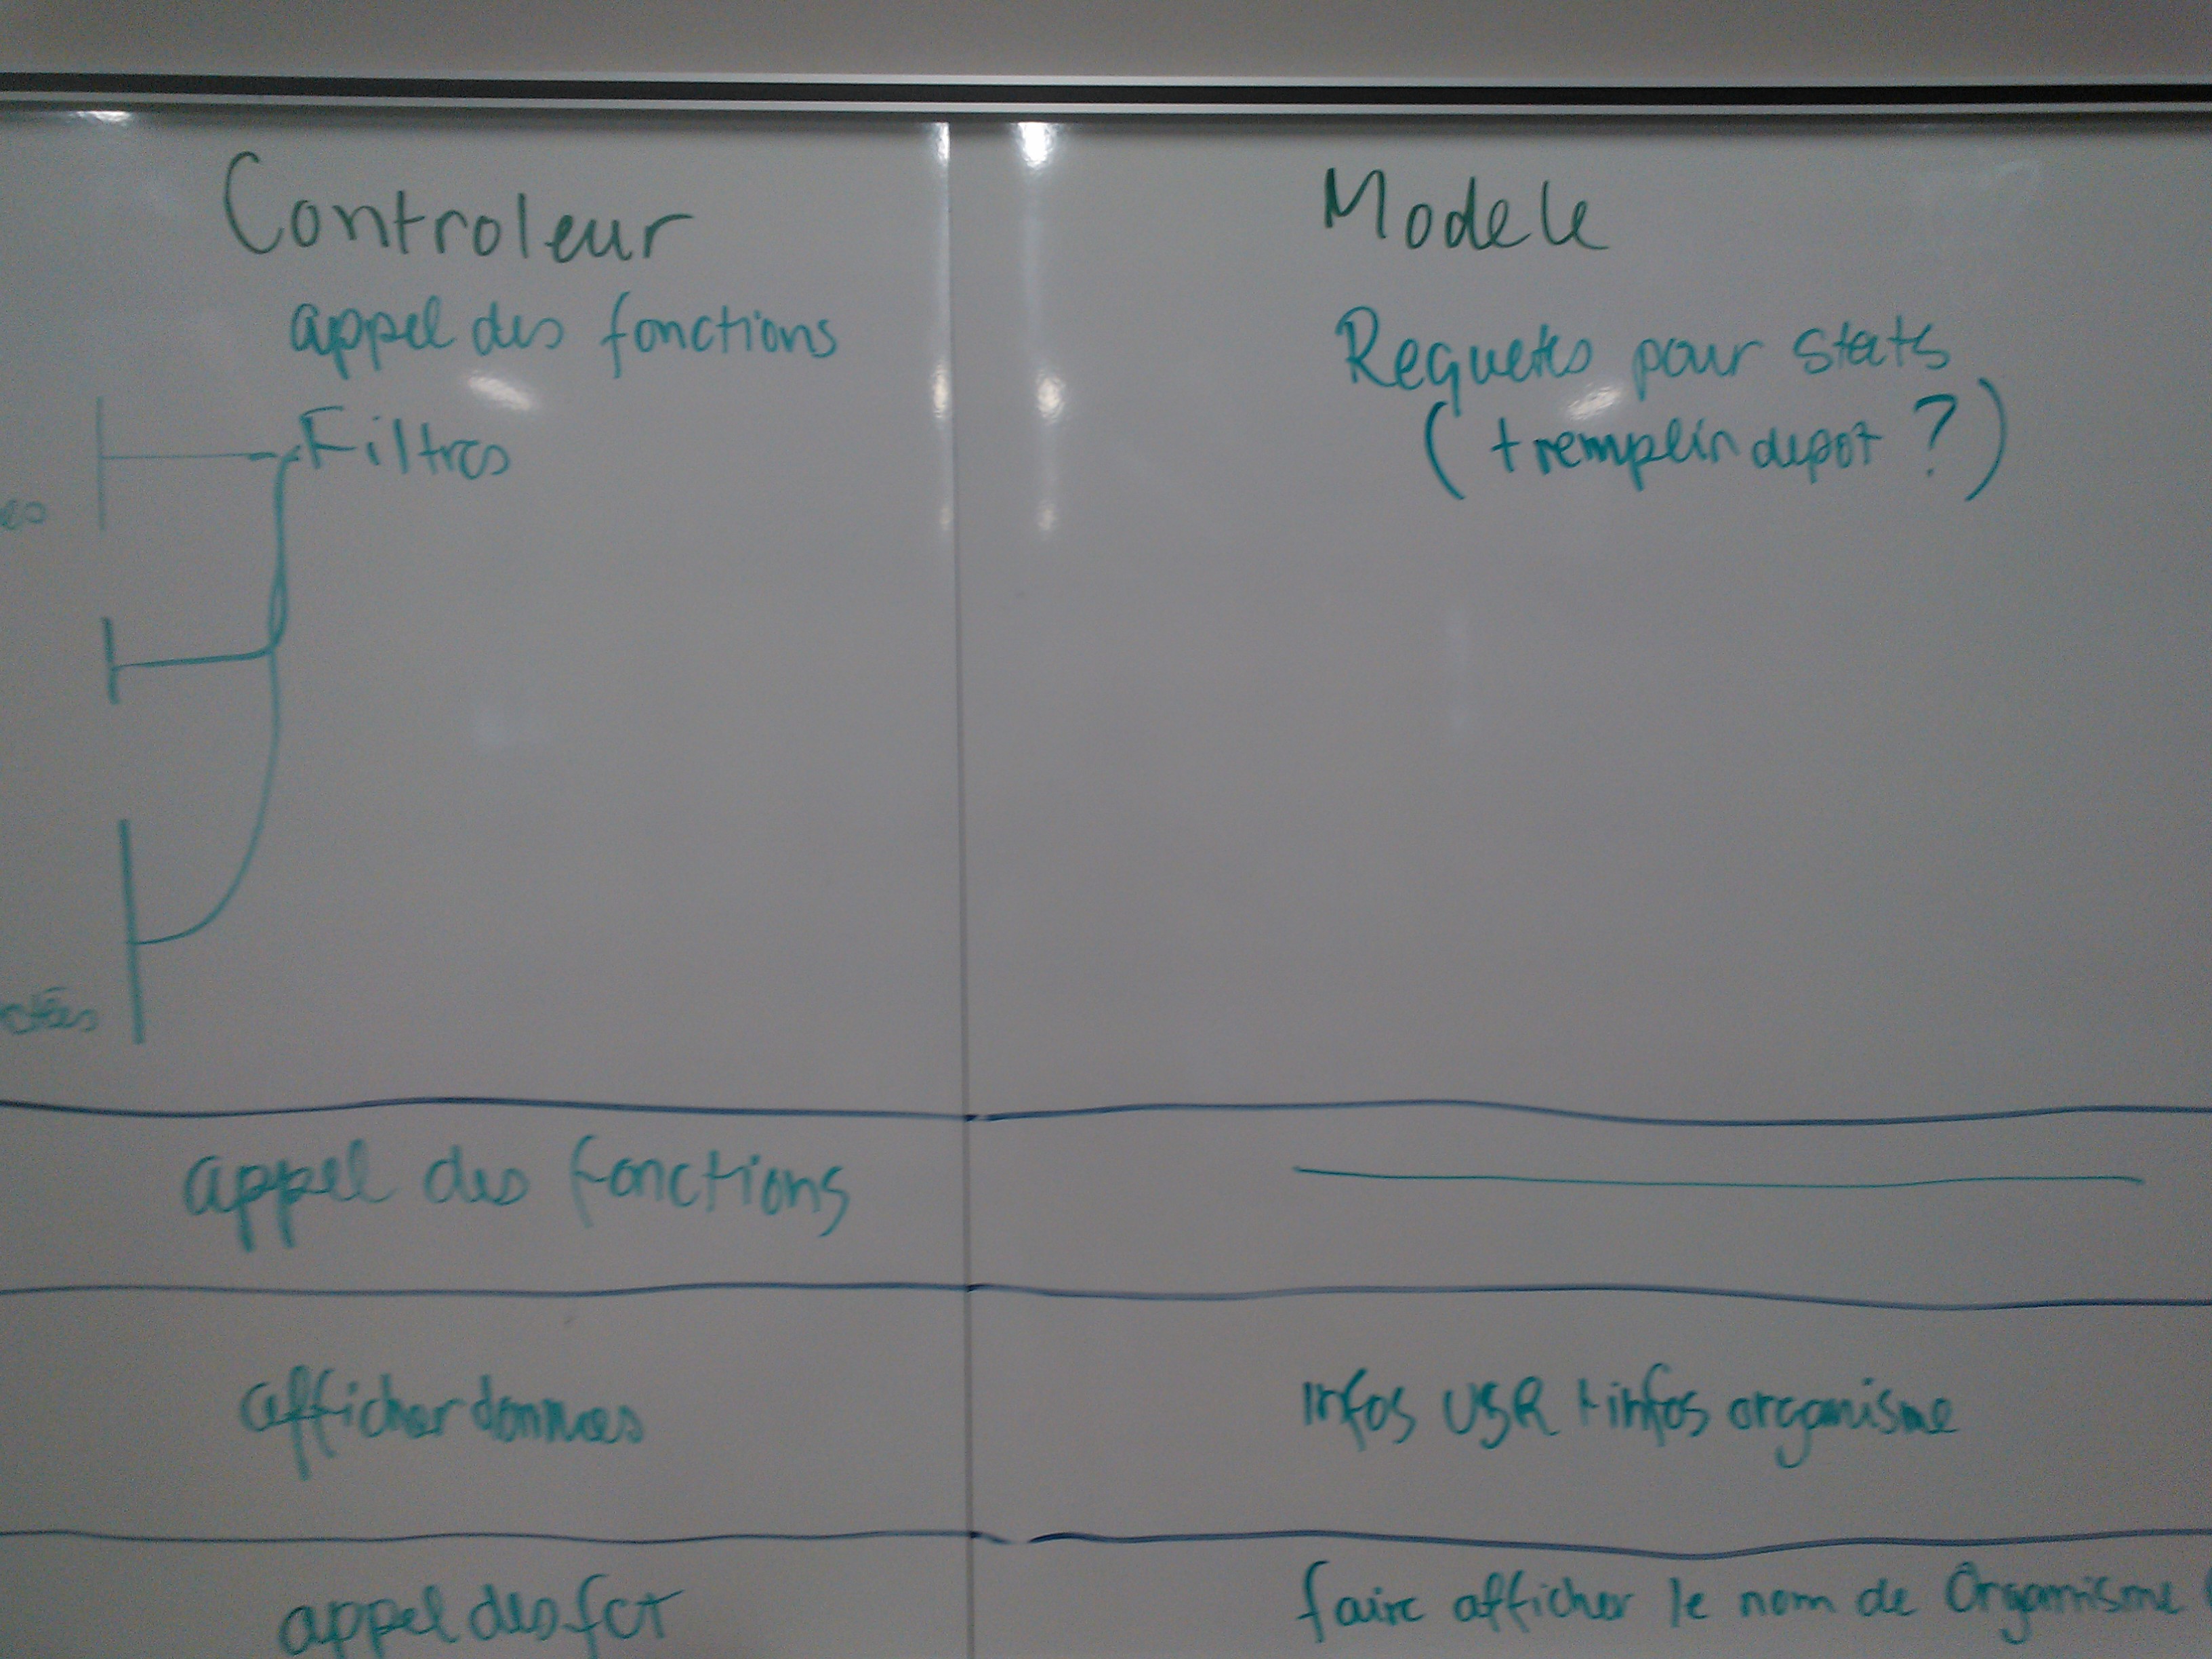 Controleur
appel des fonctions
Filtres
Modele
Requetes pour stats
(tremplin depot ?)
appel des fonctions
afficher donnees
infos USR + infos organisme
appel des fct
faire afficher le nom de Organisme (